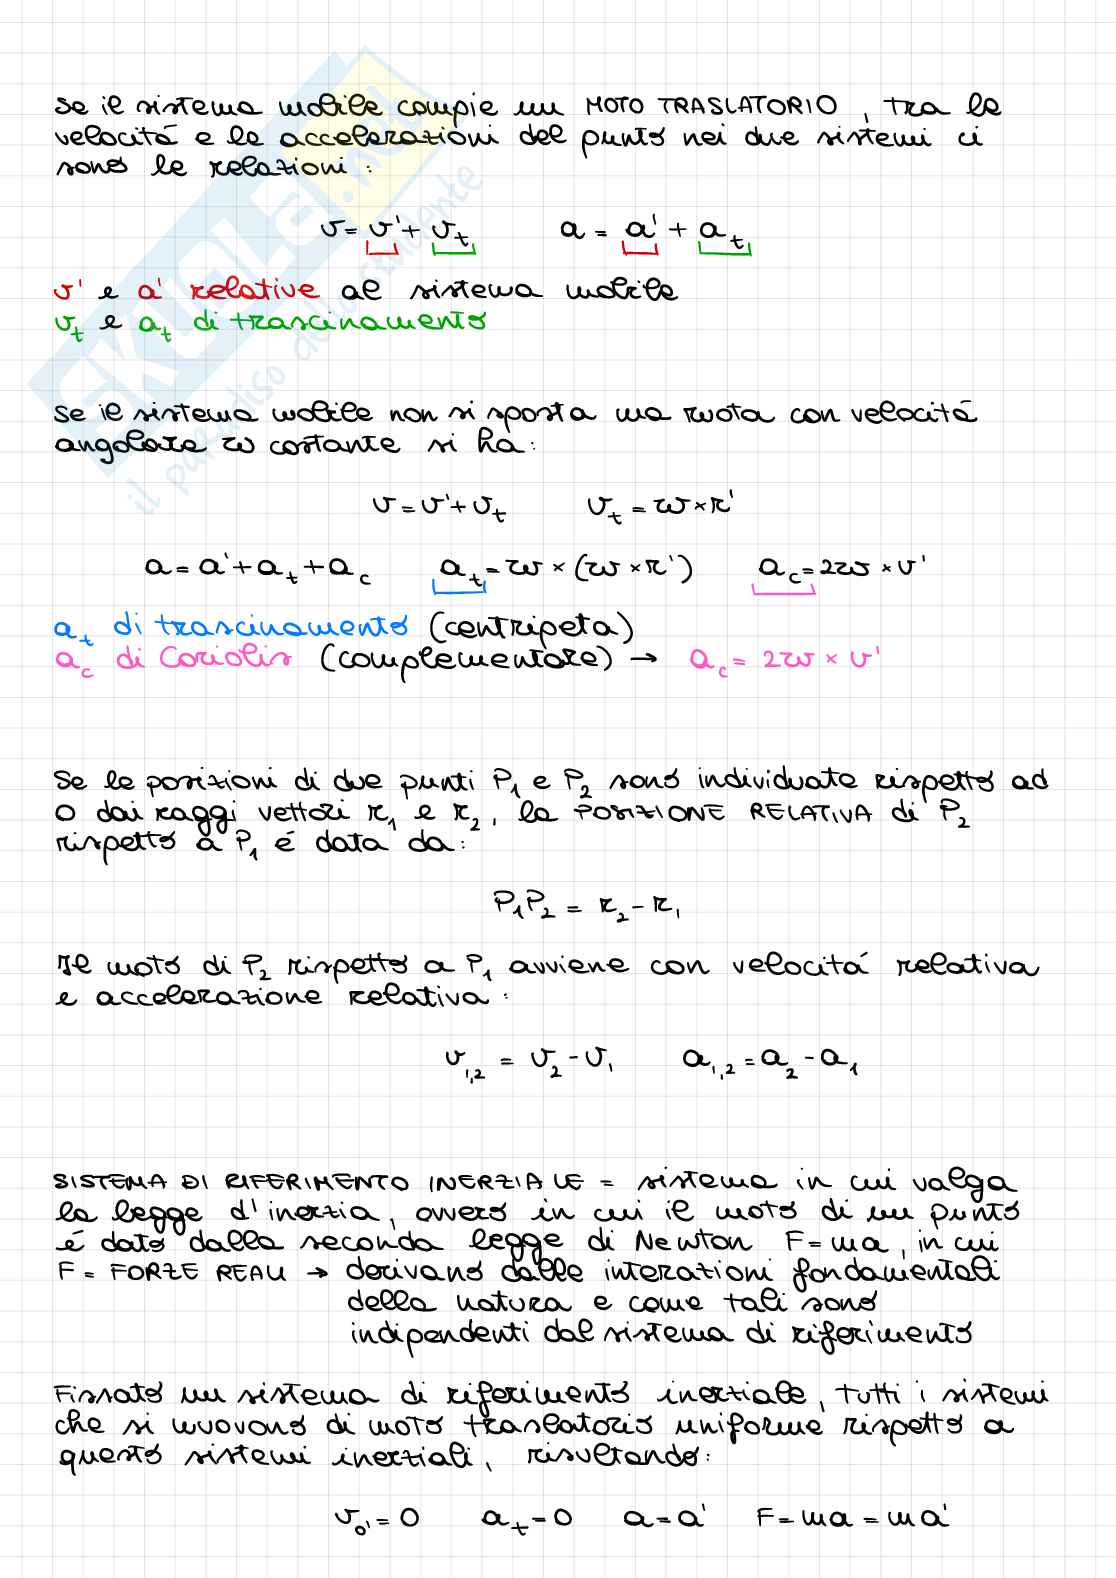 Se il sistema mobile compie un MOTO TRASLATORIO, tra le
velocità e le accelerazioni del punto nei due sistemi ci
sono le relazioni:
v = v' + v_t a = a' + a_t
v' e a' relative al sistema mobile
v_t e a_t di trascinamento
Se il sistema mobile non si sposta ma ruota con velocità
angolare w costante si ha:
v = v' + v_t v_t = w × r'
a = a' + a_t + a_c a_t = w × (w × r') a_c = 2w × v'
a_t di trascinamento (centripeta)
a_c di Coriolis (complementare) → a_c = 2w × v'
Se le posizioni di due punti P₁ e P₂ sono individuate rispetto ad
O dai raggi vettori r₁ e r₂, la POSIZIONE RELATIVA di P₂
rispetto a P₁ è data da:
P₁P₂ = r₂ - r₁
Il moto di P₂ rispetto a P₁ avviene con velocità relativa
e accelerazione relativa:
v₁,₂ = v₂ - v₁ a₁,₂ = a₂ - a₁
SISTEMA DI RIFERIMENTO INERZIALE = sistema in cui valga
la legge d'inerzia, ovvero in cui il moto di un punto
è dato dalla seconda legge di Newton F = ma, in cui
F = FORZE REALI → derivano dalle interazioni fondamentali
della natura e come tali sono
indipendenti dal sistema di riferimento
Fissato un sistema di riferimento inerziale, tutti i sistemi
che si muovono di moto traslatorio uniforme rispetto a
questo sistemi inerziali, risultando:
v_o' = 0 a_t = 0 a = a' F = ma = ma'
SKUOLA.net
il paradiso dello studente